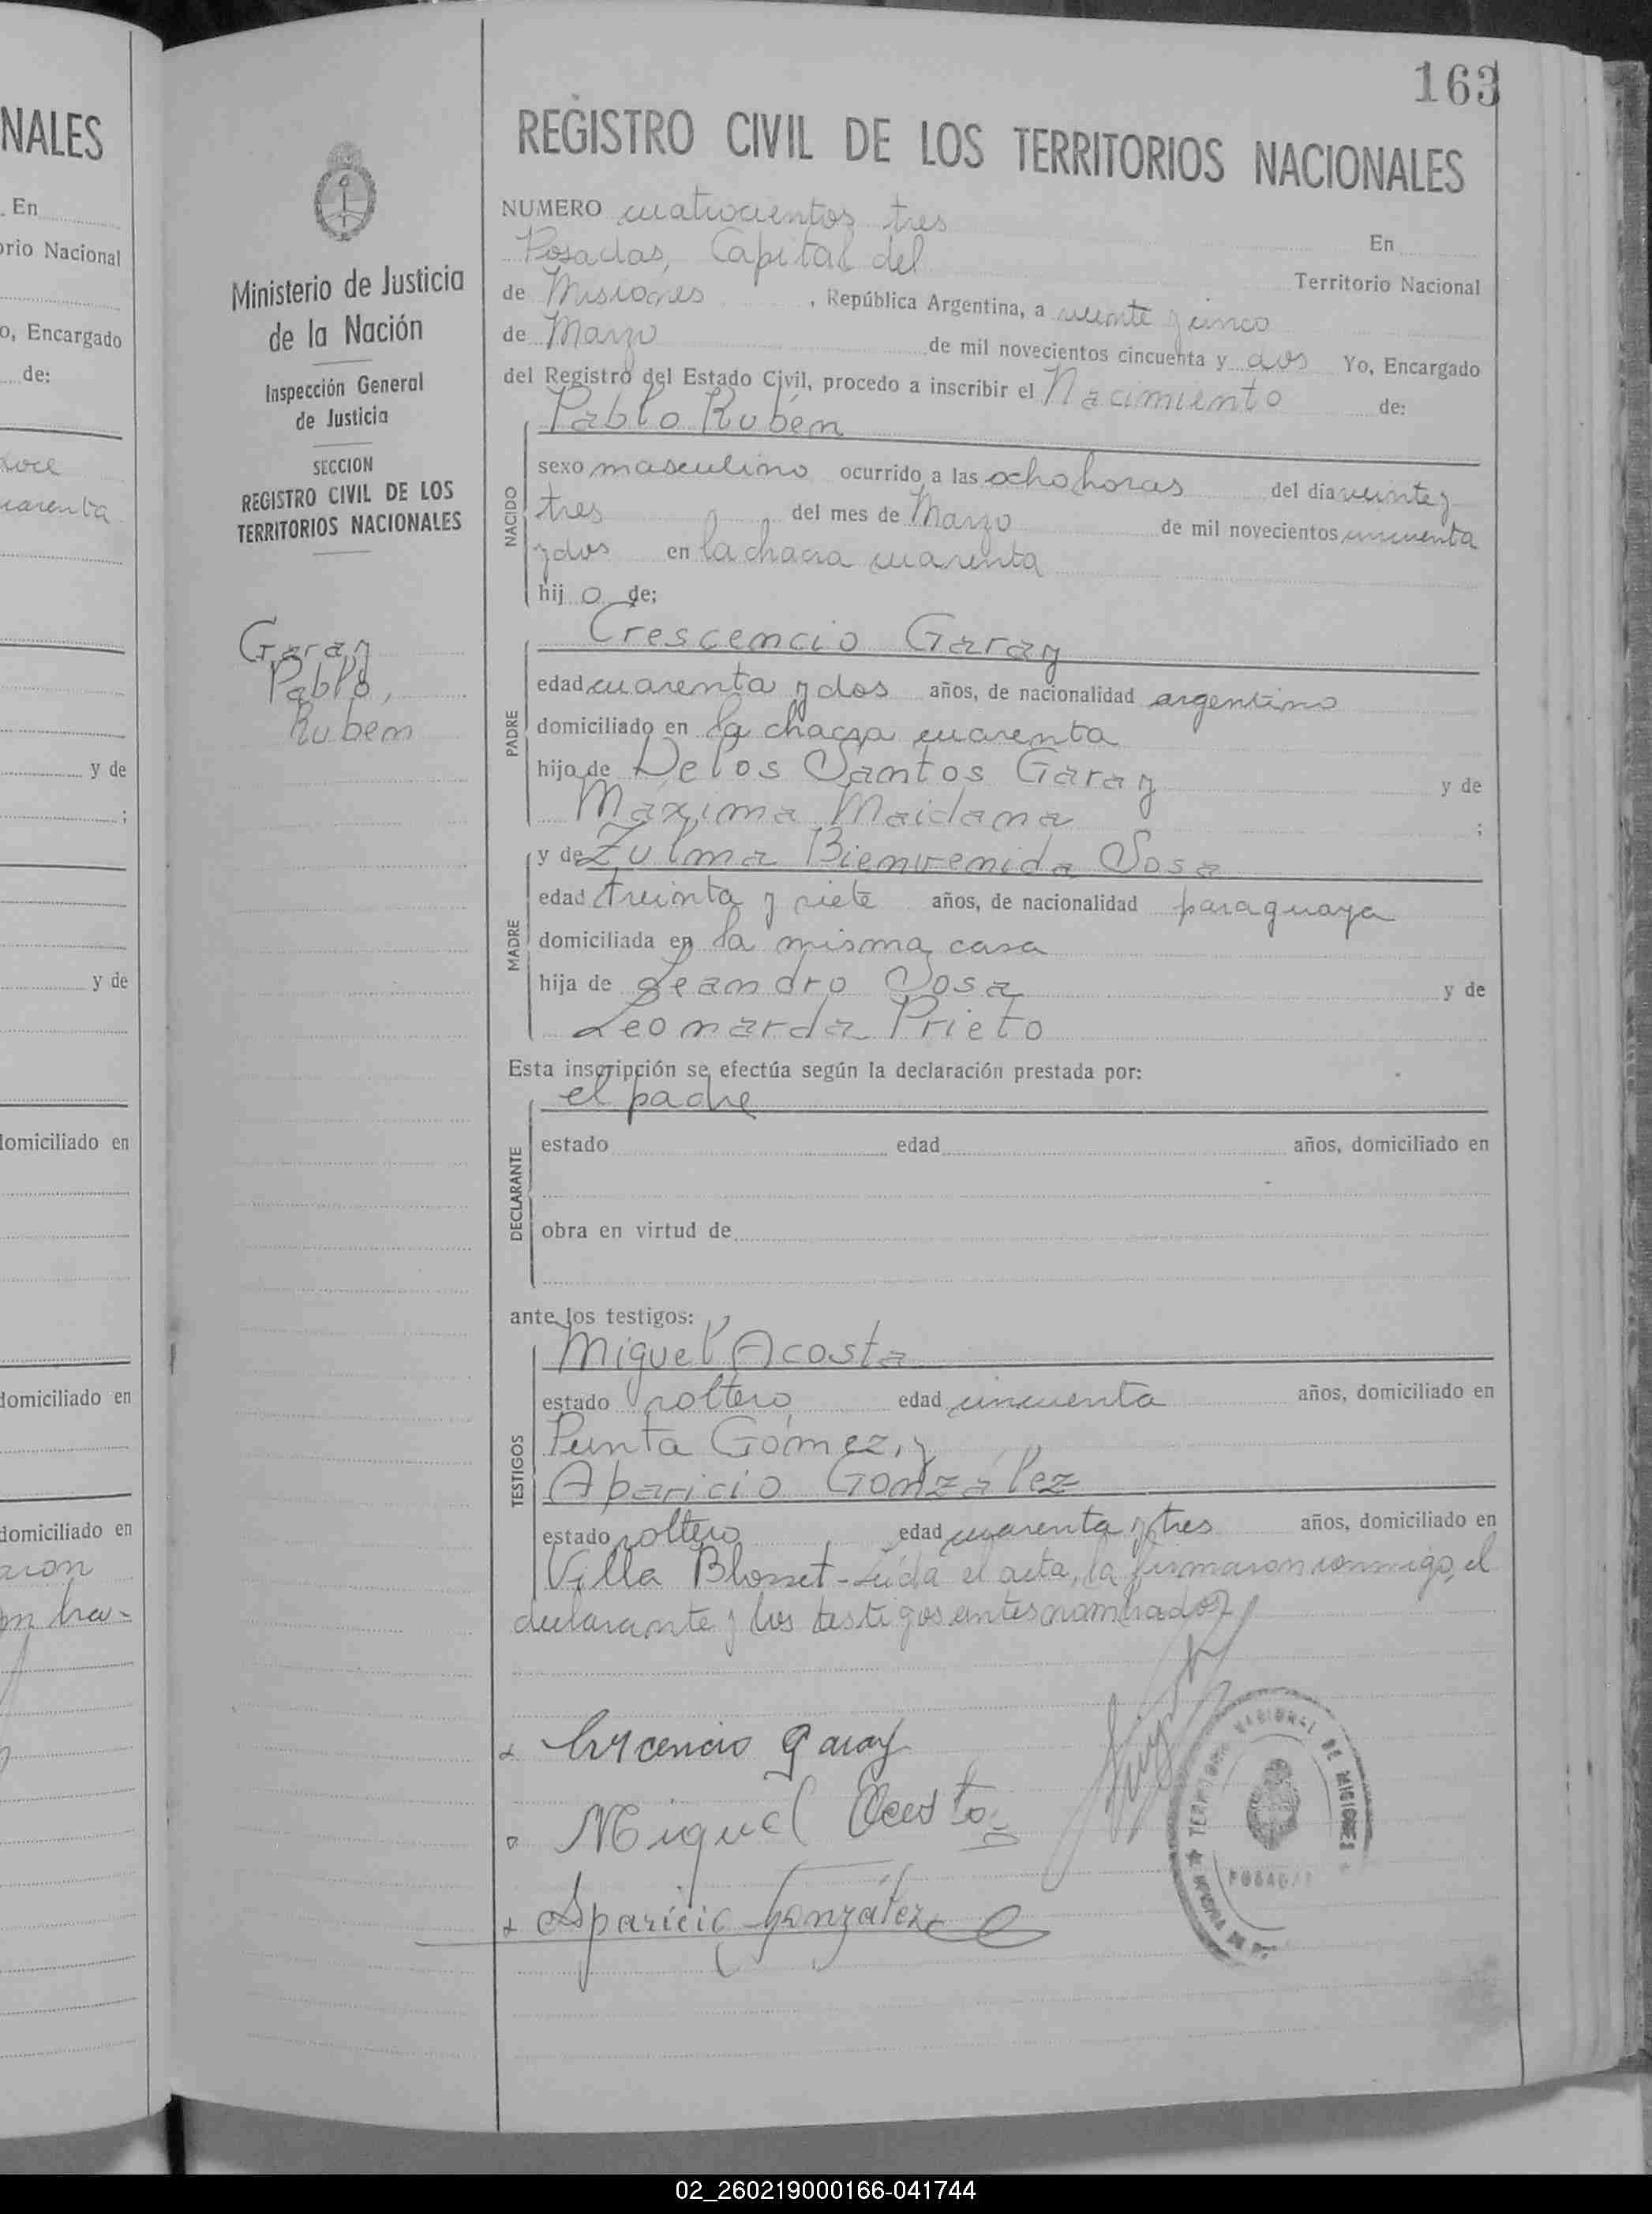 163
NALES
En
orio Nacional
o, Encargado
de:
doce
uarenta
y de
;
y de
domiciliado en
domiciliado en
domiciliado en
aron
m bra-
Ministerio de Justicia
de la Nación
Inspección General
de Justicia
SECCION
REGISTRO CIVIL DE LOS
TERRITORIOS NACIONALES
Garay
Pablo,
Ruben
REGISTRO CIVIL DE LOS TERRITORIOS NACIONALES
NUMERO cuatrocientos tres
Posadas, Capital del En
de Misiones, República Argentina, a veinte y cinco Territorio Nacional
de Marzo de mil novecientos cincuenta y dos Yo, Encargado
del Registro del Estado Civil, procedo a inscribir el Nacimiento de:
Pablo Rubén
NACIDO
sexo masculino ocurrido a las ocho horas del día veinte y
tres del mes de Marzo de mil novecientos cincuenta
y dos en la chacra cuarenta
hij o de:
Crescencio Garay
PADRE
edad cuarenta y dos años, de nacionalidad argentino
domiciliado en la chacra cuarenta
hijo de De los Santos Garay y de
Máxima Maidana ;
y de Zulma Bienvenida Sosa
MADRE
edad treinta y siete años, de nacionalidad paraguaya
domiciliada en la misma casa
hija de Leandro Sosa y de
Leonarda Prieto
Esta inscripción se efectúa según la declaración prestada por:
el padre
DECLARANTE
estado edad años, domiciliado en
obra en virtud de
ante los testigos:
Miguel Acosta
TESTIGOS
estado soltero edad cincuenta años, domiciliado en
Punta Gómez, y
Aparicio González
estado soltero edad cuarenta y tres años, domiciliado en
Villa Blosset - Leída el acta, la firmaron conmigo, el
declarante y los testigos antes nombrados
Crecencio Garay
Miguel Acosta
Aparicio González
TERRITORIO NACIONAL DE MISIONES
POSADAS
02_260219000166-041744